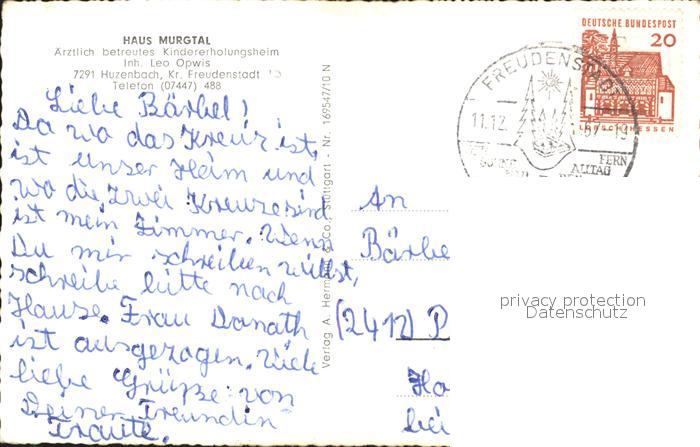 HAUS MURGTAL
Ärztlich betreutes Kindererholungsheim
Inh. Leo Opwis
7291 Huzenbach, Kr. Freudenstadt
Telefon (07447) 488
Liebe Bärbel!
Da wo das Kreuz ist,
ist unser Heim und
wo die zwei Kreuze sind
ist mein Zimmer. Wenn
Du mir schreiben willst,
schreibe bitte nach
Hause. Frau Donath
ist ausgezogen. Viele
liebe Grüße von
Deiner Freundin
Traute.
Verlag A. & Co., Stuttgart - Nr. 169547/10 N
DEUTSCHE BUNDESPOST
20
LORSCH/HESSEN
FREUDENSTADT
11.12.
FERN
ALLTAG
An
Bärbe
(2412) P
Ha
bei
privacy protection
Datenschutz